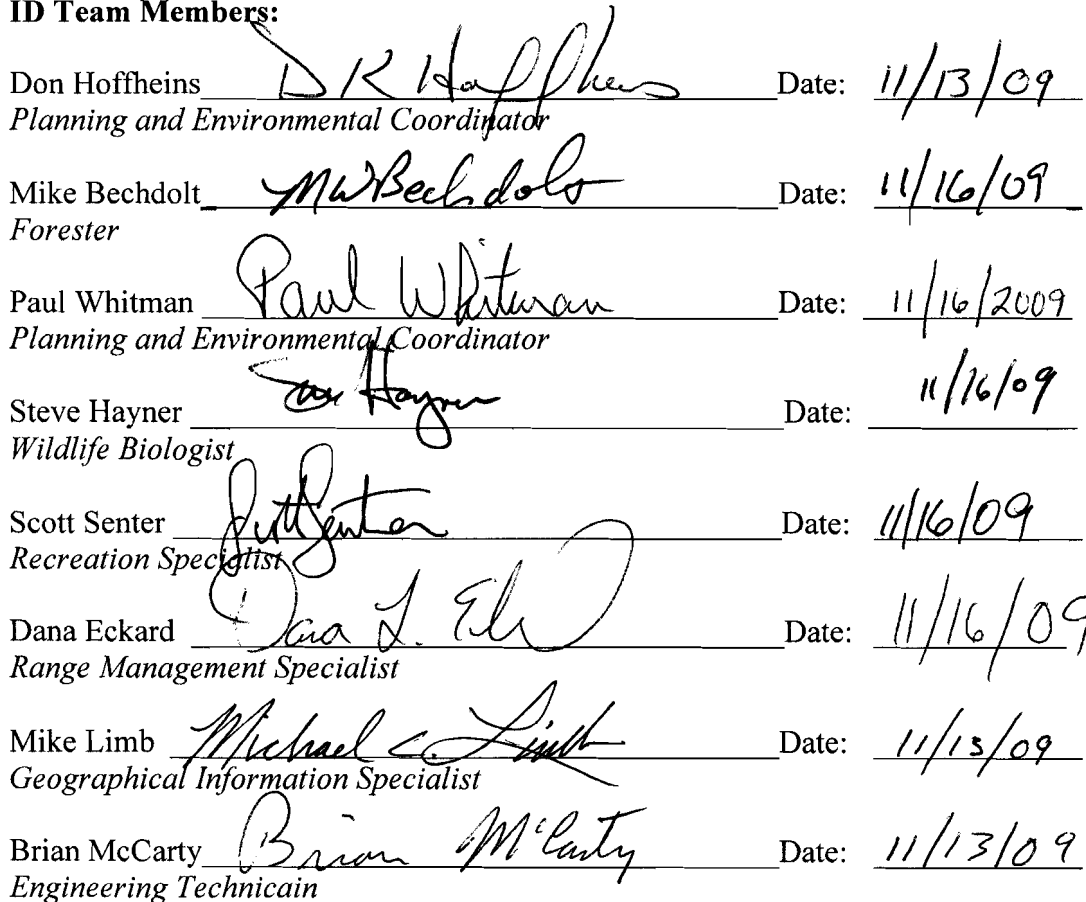 ID Team Members:
Don Hoffheins D R Hoffheins Date: 11/13/09
Planning and Environmental Coordinator
Mike Bechdolt MWBechdolt Date: 11/16/09
Forester
Paul Whitman Paul Whitman Date: 11/16/2009
Planning and Environmental Coordinator
Steve Hayner Steve Hayner Date: 11/16/09
Wildlife Biologist
Scott Senter Scott Senter Date: 11/16/09
Recreation Specialist
Dana Eckard Dana L. Date: 11/16/09
Range Management Specialist
Mike Limb Michael C. Limb Date: 11/13/09
Geographical Information Specialist
Brian McCarty Brian McCarty Date: 11/13/09
Engineering Technicain